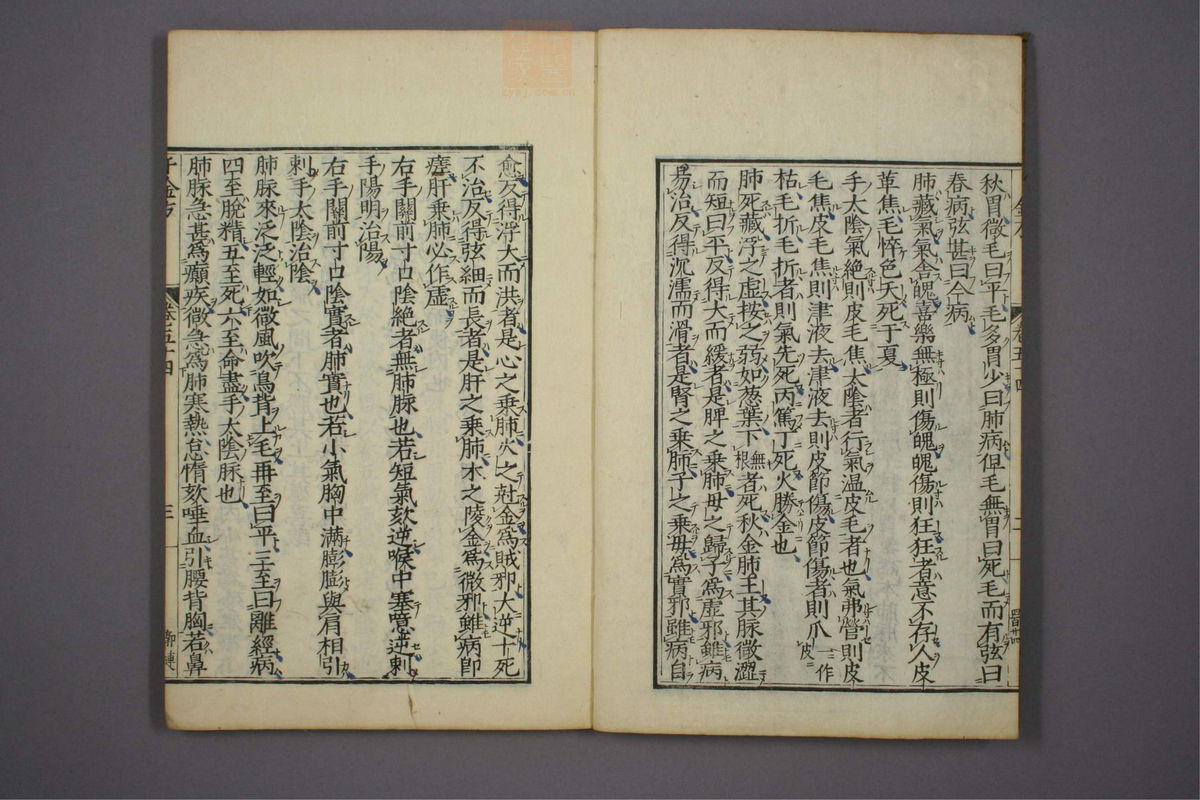 秋胃微毛曰平毛多胃少曰肺病但毛無胃曰死毛而有弦曰
春病弦甚曰今病
肺藏氣氣舍魄喜樂無極則傷魄魄傷則狂狂者意不存人皮
革焦毛悴色夭死于夏
手太陰氣絕則皮毛焦太陰者行氣温皮毛者也氣弗營則皮
毛焦皮毛焦則津液去津液去則皮節傷皮節傷者則爪一作皮
枯毛折毛折者則氣先死丙篤丁死火勝金也
肺死藏浮之虛按之弱如葱葉下無根者死秋金肺王其脉微澀
而短曰平反得大而緩者是脾之乘肺母之歸子爲虛邪雖病
易治反得沉濡而滑者是腎之乘肺子之乘母爲實邪雖病自
愈反得浮大而洪者是心之乘肺火之尅金爲賊邪大逆十死
不治反得弦細而長者是肝之乘肺木之陵金爲微邪雖病即
瘥肝乘肺必作虛
右手關前寸口陰絕者無肺脉也若短氣欬逆喉中塞噫逆刺
手陽明治陽
右手關前寸口陰實者肺實也若小氣胸中滿膨膨與肩相引
刺手太陰治陰
肺脉來泛泛輕如微風吹鳥背上毛再至曰平三至曰離經病
四至脫精五至死六至命盡手太陰脉也
肺脉急甚爲癲疾微急爲肺寒熱怠惰欬唾血引腰背胸若鼻
千金方
卷五十四
三